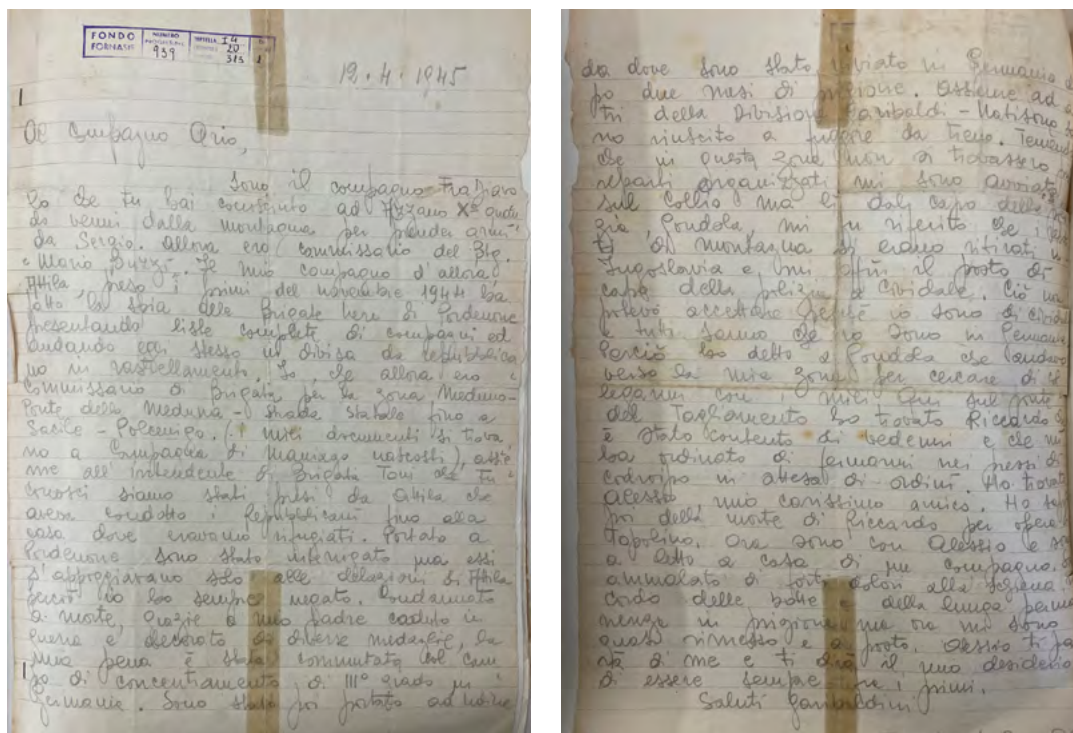 FONDO FORNASIR
939
I 4
20
313
1
12.4.1945
Al compagno Ario,
Sono il compagno Fra Diavo
lo che tu hai conosciuto ad Azzano X° quan
do venni dalla montagna per prender armi
da Sergio. Allora ero commissario del Btg.
"Mario Buzzi". Il mio compagno d'allora
Attila, preso i primi del novembre 1944 ha
fatto la spia alle Brigate nere di Pordenone
presentando liste complete di compagni ed
andando egli stesso in divisa da repubblica
no in rastrellamento. Io, che allora ero
Commissario di Brigata per la zona Meduno-
Ponte della Meduna - strada statale fino a
Sacile - Polcenigo. (i miei documenti si trova
no a Campagna di Maniago nascosti), assie
me all'Intendente di Brigata Toni che tu
conosci siamo stati presi da Attila che
aveva condotto i Repubblicani fino alla
casa dove eravamo rifugiati. Portato a
Pordenone sono stato interrogato ma essi
s'appoggiavano solo alle delazioni di Attila
perciò io ho sempre negato. Condannato
a morte, grazie a mio padre caduto in
guerra e decorato di diverse medaglie, la
mia pena è stata commutata col cam
po di concentramento di III° grado in
Germania. Sono stato poi portato ad Udine
da dove sono stato inviato in Germania do
po due mesi di prigione. Assieme ad al
tri della Divisione Garibaldi - Natisone so
no riuscito a fuggire da treno. Temendo
che in questa zona non si trovassero
reparti organizzati mi sono avviato
sul Collio ma lì dal capo della
zia, Gondola, mi fu riferito che i
ti di montagna si erano ritirati in
Jugoslavia e mi offrì il posto di
capo della polizia a Cividale. Ciò non
potevo accettare perché io sono di Cividale
e tutti sanno che io sono in Germania
Perciò ho detto a Gondola che andavo
verso la mia zona per cercare di
legarmi con i miei. Qui sul ponte
del Tagliamento ho trovato Riccardo che
è stato contento di vedermi e che mi
ha ordinato di fermarmi nei pressi di
Codroipo in attesa di ordini. Ho trovato
Alessio mio carissimo amico. Ho saputo
poi della morte di Riccardo per opera
Topolino. Ora sono con Alessio e sono
a letto a casa di un compagno.
ammalato di forti dolori alla schiena
cordo delle botte e della lunga perma
nenza in prigione ma ora mi sono
quasi rimesso e a posto. Alessio ti parle
rà di me e ti dirà il mio desiderio
di essere sempre tra i primi.
Saluti garibaldini